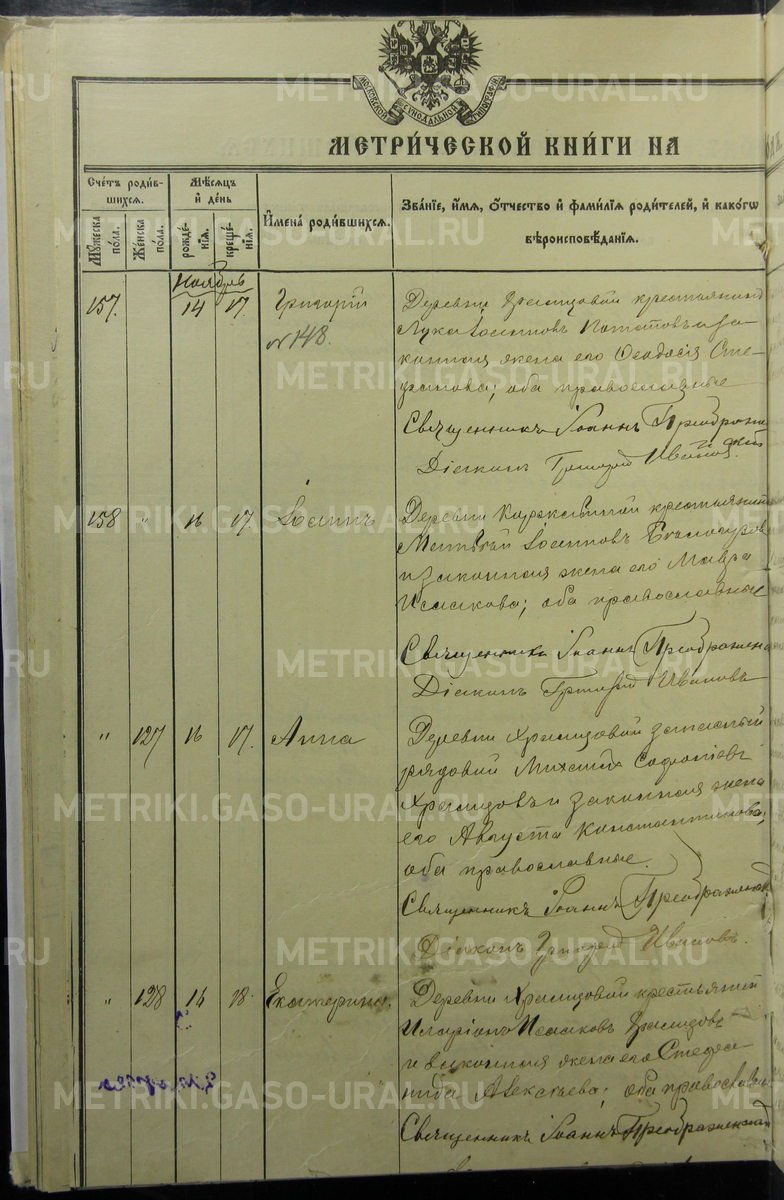 МОСКОВСКОЙ СѴНОДАЛЬНОЙ ТИПОГРАФІИ
METRIKI.GASO-URAL.RU
МЕТРИ́ЧЕСКОЙ КНИ́ГИ НА
Сче́тъ роди́в-
шихся.
Мѣ́сяцъ
и҆ де́нь
Мꙋ́жеска по́ла.
Же́нска по́ла.
рожде́-нїѧ.
креще́-нїѧ.
И҆мена̀ роди́вшихсѧ.
Зва́нїе, и҆́мѧ, ѻ҆́тчество и҆ фами́лїѧ роди́телей, и҆ како́гѡ
вѣроисповѣ́данїѧ.
Ноябрь
157. 14 17. Григорій
№ 148.
Деревни Храмцовой крестьянинъ
Лука Іосиповъ и за-
конная жена его Ѳеодосія Сте-
фанова; оба православные
Священникъ Іоаннъ Преображен
скій
Діаконъ Григорій Ивановъ.
158 " 16 17. Іосипъ
Деревни крестьянинъ
Матвѣй Іосиповъ
и законная жена его Мавра
Исаакова; оба православные
Священникъ Іоаннъ Преображен
Діаконъ Григорій Ивановъ
" 127 16 17. Анна
Деревни Храмцовой запасный
рядовой Михаилъ Софоніевъ
Храмцовъ и законная жена
его Августа Константинова;
оба православные.
Священникъ Іоаннъ Преображенскій
Діаконъ Григорій Ивановъ.
" 128 14 18. Екатерина.
Деревни Храмцовой крестьянинъ
Иларіонъ Исааковъ Храмцовъ
и законная жена его Стефа-
нида Алексѣева; оба православн
Священникъ Іоаннъ Преображенскій